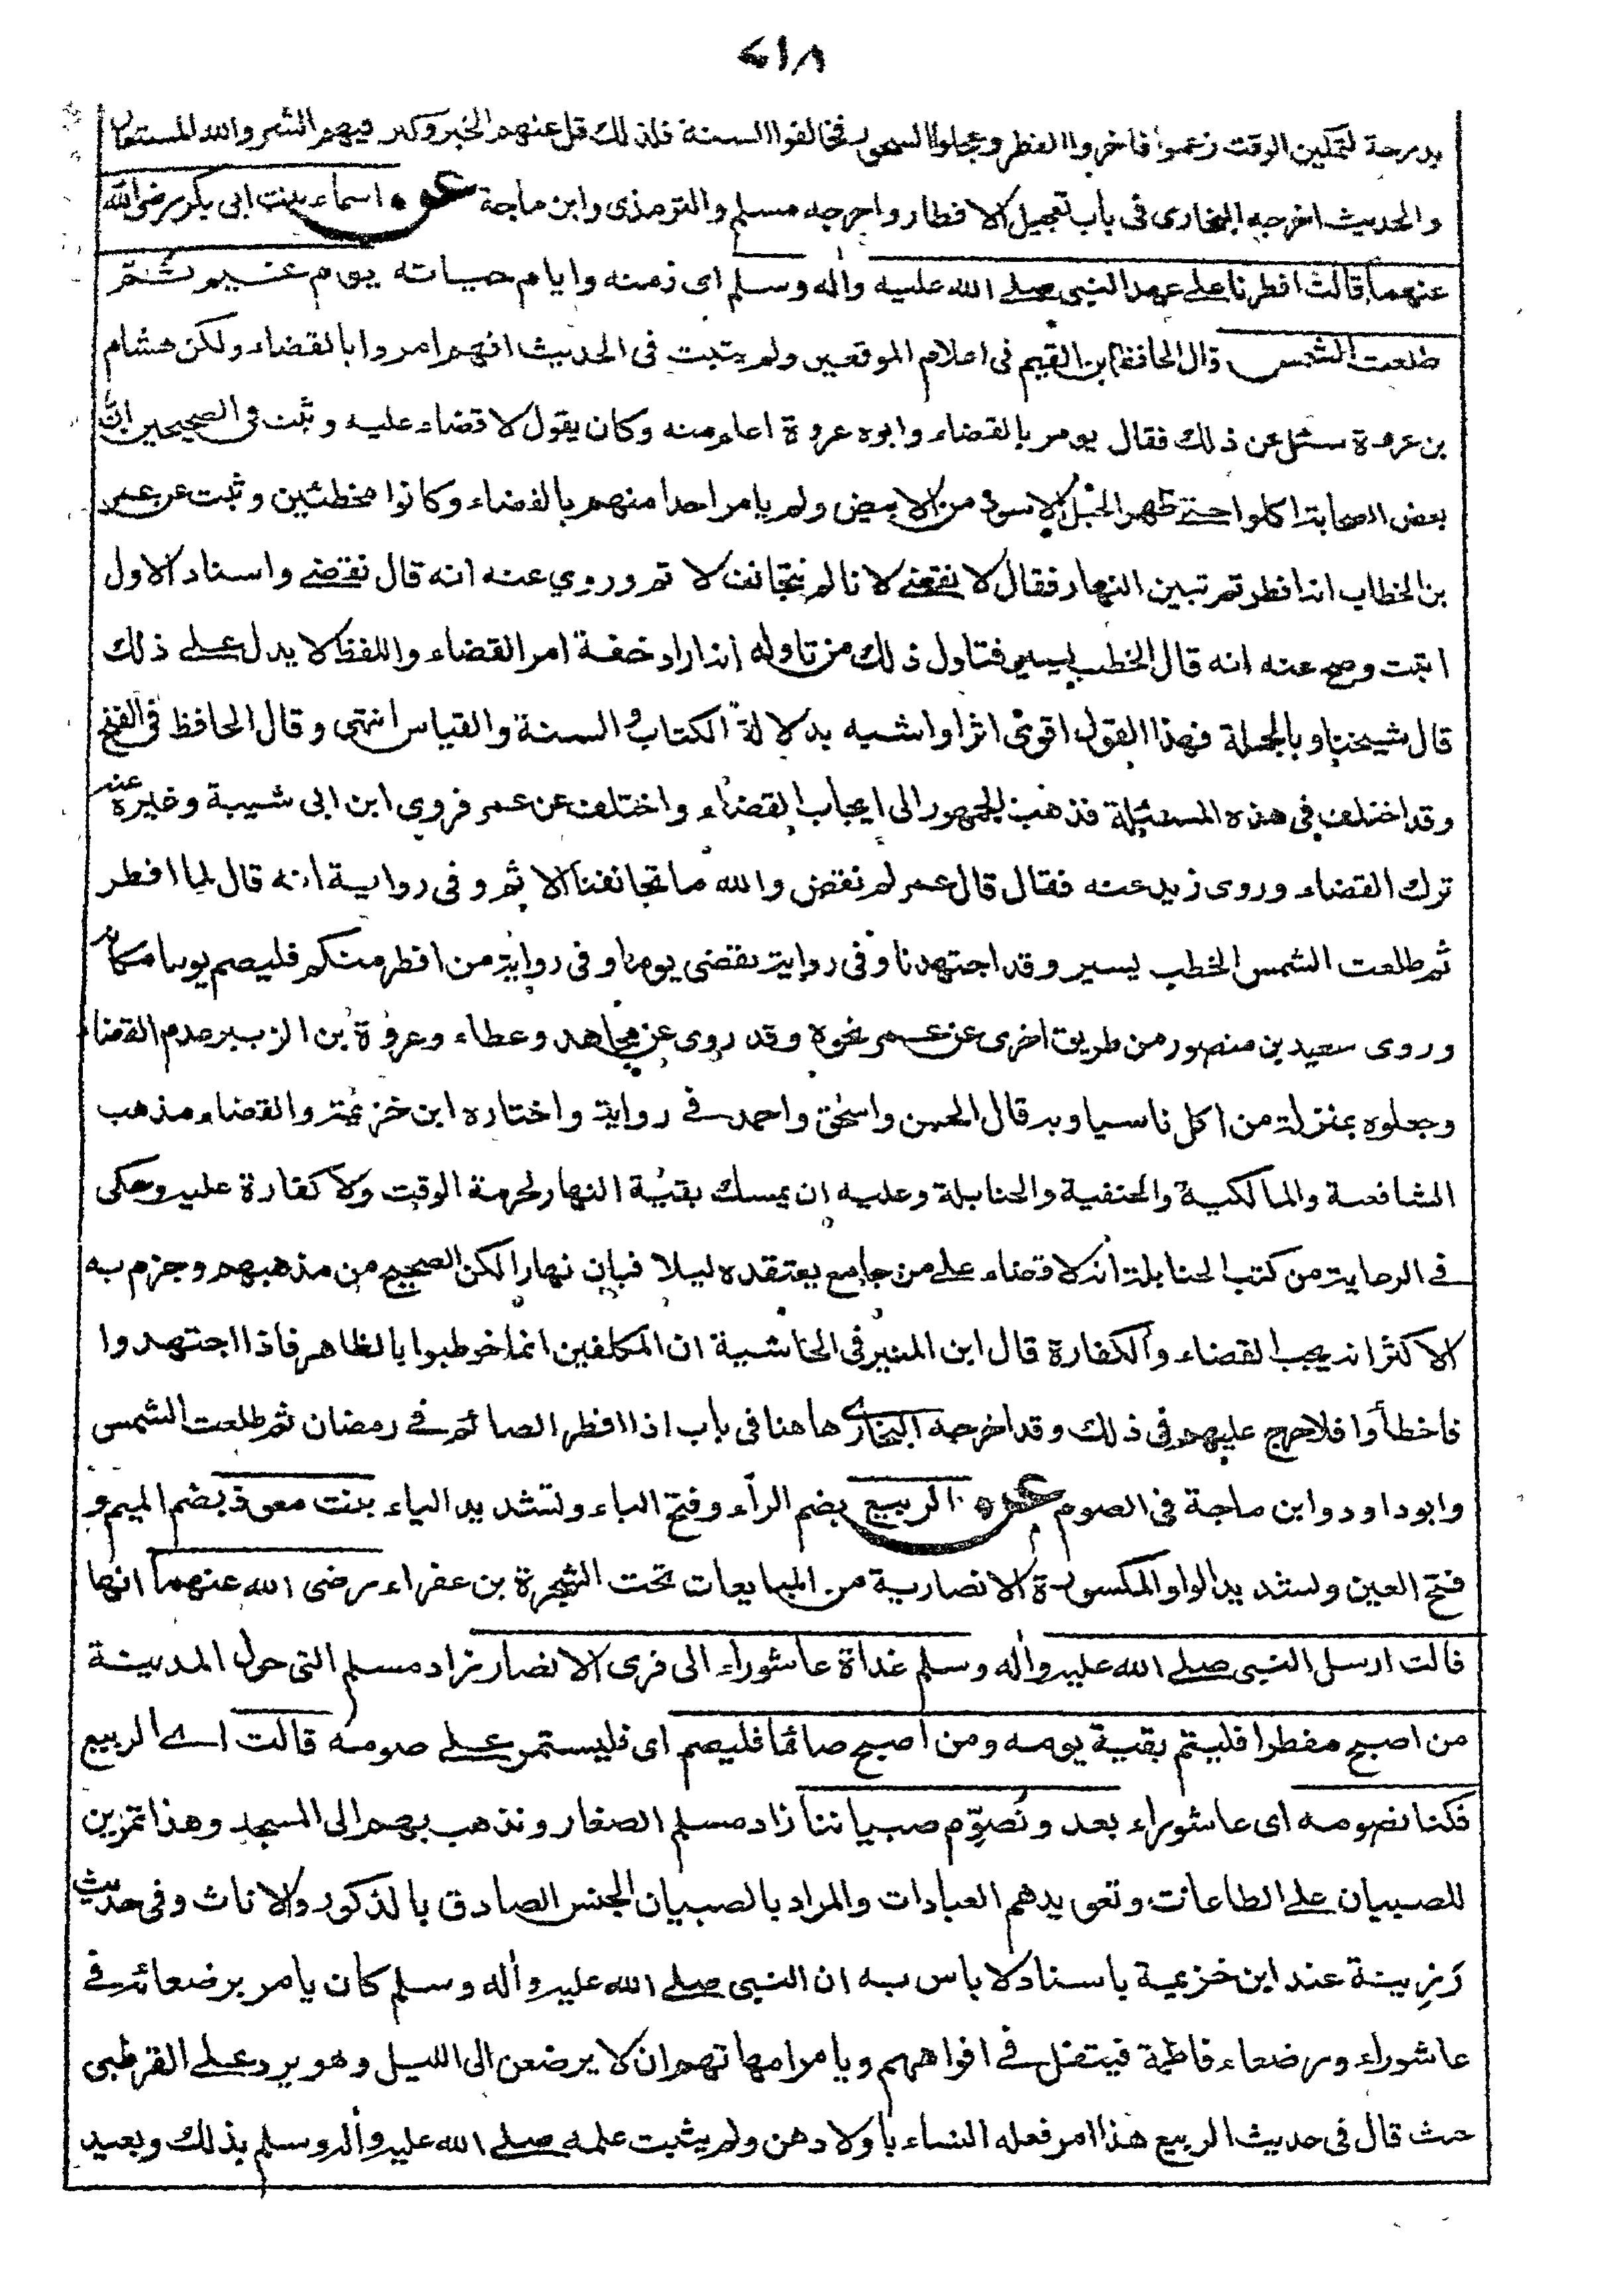 ٤١٨
بدرجة لتمكين الوقت زعموا فاخروا الفطر وعجلوا السحور فخالفوا السنة فلذلك قل عنهم الخير وكثر فيهم الشر والله المستعان
والحديث اخرجه البخارى فى باب تعجيل الافطار واخرجه مسلم والترمذى وابن ماجة عن اسماء بنت ابى بكر رضى الله
عنهما قالت افطرنا على عهد النبى صلى الله عليه واله وسلم اى زمنه وايام حياته يوم غيم ثم
طلعت الشمس قال الحافظ ابن القيم فى اعلام الموقعين ولم يثبت فى الحديث انهم امروا بالقضاء ولكن هشام
بن عروة سئل عن ذلك فقال يومر بالقضاء وابوه عروة اعلم منه وكان يقول لا قضاء عليه وثبت فى الصحيحين ان
بعض الصحابة اكلوا حتى ظهر الخبل الاسود من الابيض ولم يامر احدا منهم بالقضاء وكانوا مخطئين وثبت عن عمر
بن الخطاب انه افطر ثم تبين النهار فقال لا نقضى لانا لم نتجانف لاثم وروي عنه انه قال نقضى واسناد الاول
اثبت وصح عنه انه قال الخطب يسير فتاول ذلك من تاوله انه اراد خفة امر القضاء واللفظ لا يدل على ذلك
قال شيخنا وبالجملة فهذا القول اقوى اثرا واشبه بدلالة الكتاب والسنة والقياس انتهى وقال الحافظ فى الفتح
وقد اختلف فى هذه المسئلة فذهب الجمهور الى ايجاب القضاء واختلف عن عمر فروي ابن ابى شيبة وغيره عنه
ترك القضاء وروى زيد عنه فقال قال عمر لم نقض والله ما تجانفنا الاثم وفى رواية انه قال لما افطر
ثم طلعت الشمس الخطب يسير وقد اجتهدنا وفى رواية نقضى يوما وفى رواية من افطر منكم فليصم يوما مكانه
وروى سعيد بن منصور من طريق اخرى عن عمر نحوه وقد روى عن مجاهد وعطاء وعروة بن الزبير عدم القضاء
وجعلوه بمنزلة من اكل ناسيا وبه قال الحسن واسحٰق واحمد فى رواية واختاره ابن خزيمة والقضاء مذهب
الشافعية والمالكية والحنفية والحنابلة وعليه ان يمسك بقية النهار لحرمة الوقت ولا كفارة عليه وحكى
فى الرعاية من كتب الحنابلة انه لا قضاء على من جامع يعتقده ليلا فبان نهارا لكن الصحيح من مذهبهم وجزم به
الاكثر انه يجب القضاء والكفارة قال ابن المنير فى الحاشية ان المكلفين انما خوطبوا بالظاهر فاذا اجتهدوا
فاخطأوا فلا حرج عليهم فى ذلك وقد اخرجه البخارى هاهنا فى باب اذا افطر الصائم فى رمضان ثم طلعت الشمس
وابو داود وابن ماجة فى الصوم عن الربيع بضم الراء وفتح الباء وتشديد الياء بنت معوذ بضم الميم و
فتح العين وتشديد الواو المكسورة الانصارية من المبايعات تحت الشجرة بن عفراء رضى الله عنهما انها
قالت ارسل النبى صلى الله عليه واله وسلم غداة عاشوراء الى قرى الانصار زاد مسلم التى حول المدينة
من اصبح مفطرا فليتم بقية يومه ومن اصبح صائما فليصم اى فليستمر على صومه قالت اى الربيع
فكنا نصومه اى عاشوراء بعد ونُصوّم صبياننا زاد مسلم الصغار ونذهب بهم الى المسجد وهذا تمرين
للصبيان على الطاعات وتعويدهم العبادات والمراد بالصبيان الجنس الصادق بالذكور والاناث وفى حديث
رَزِينة عند ابن خزيمة باسناد لا باس به ان النبى صلى الله عليه واله وسلم كان يامر برضعائه فى
عاشوراء ورضعاء فاطمة فيتفل فى افواههم ويامر امهاتهم ان لا يرضعن الى الليل وهو يرد على القرطبى
حيث قال فى حديث الربيع هذا امر فعله النساء باولادهن ولم يثبت علمه صلى الله عليه واله وسلم بذلك وبعيد